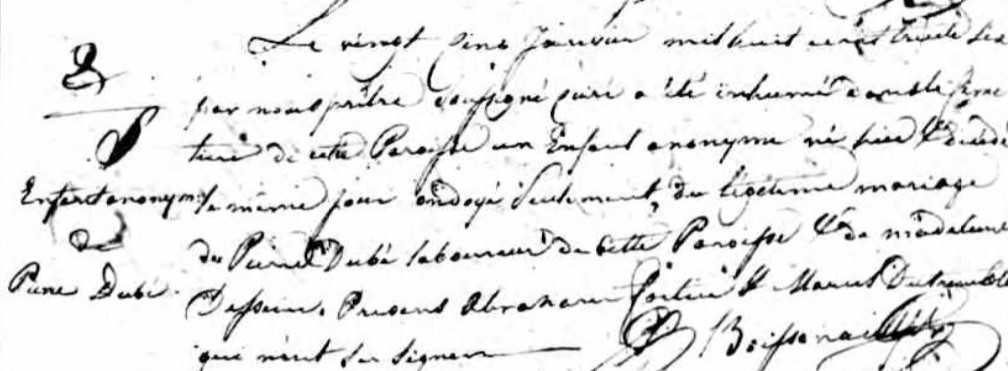 Le vingt cinq Janvier mil huit cent trente six
par nous prêtre soussigné curé a été inhumé dans le cime
tiere de cette Paroisse un Enfant anonyme né hier & décédé
Enfant anonyme
le même jour ondoyé seulement, du légitime mariage
de
de Pierre Dubé laboureur de cette Paroisse & de madeleine
Pierre Dubé.
Présens Abraham & Marcel
qui n'ont su signer